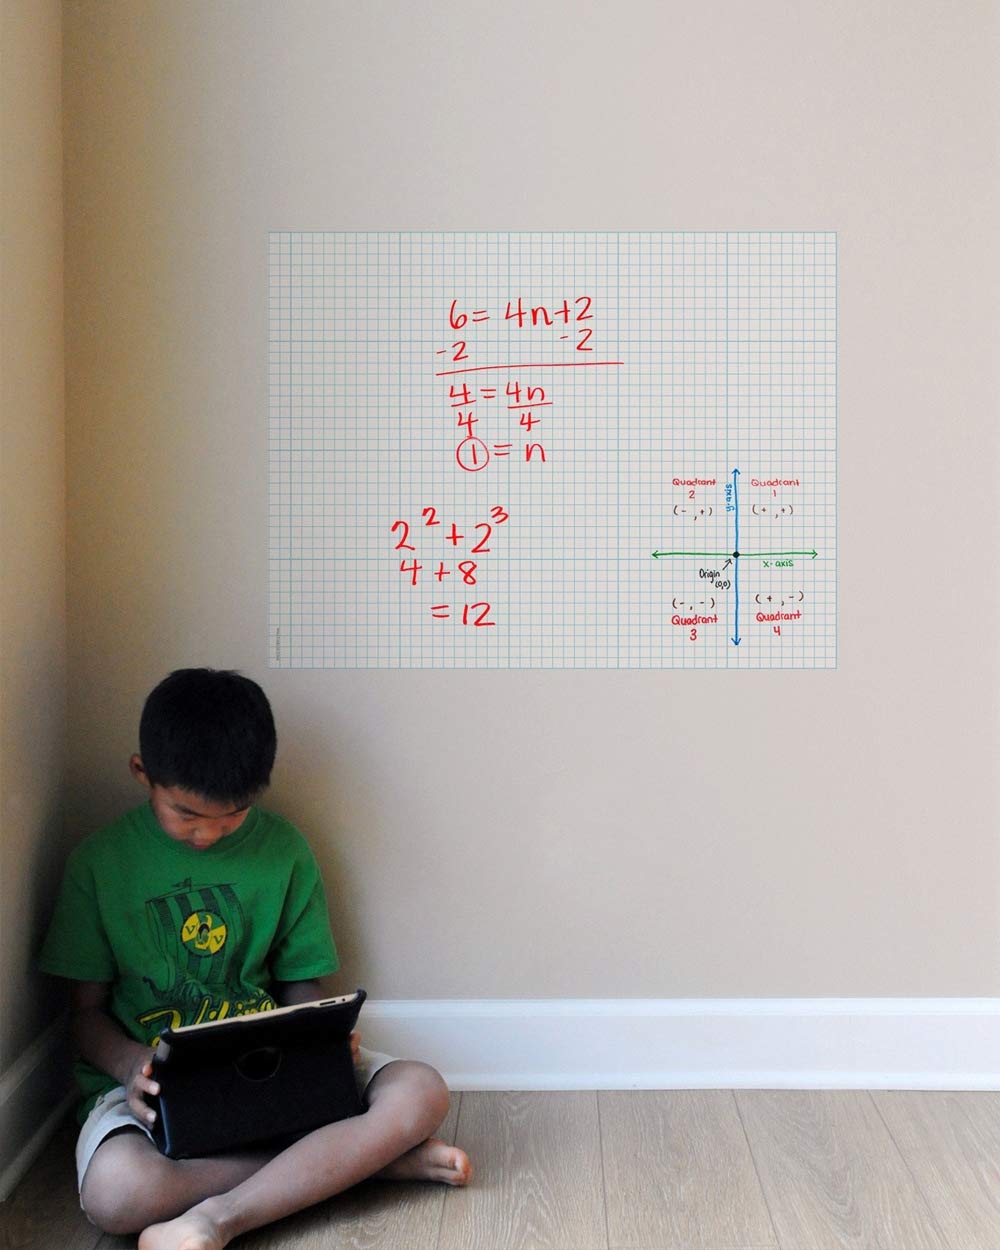 6 = 4n+2
-2 -2
4 = 4n
4 4
1 = n
2² + 2³
4 + 8
= 12
Quadrant
2
(- , +)
y-axis
Quadrant
1
(+ , +)
x-axis
Origin
(0,0)
(- , -)
Quadrant
3
(+ , -)
Quadrant
4
V V